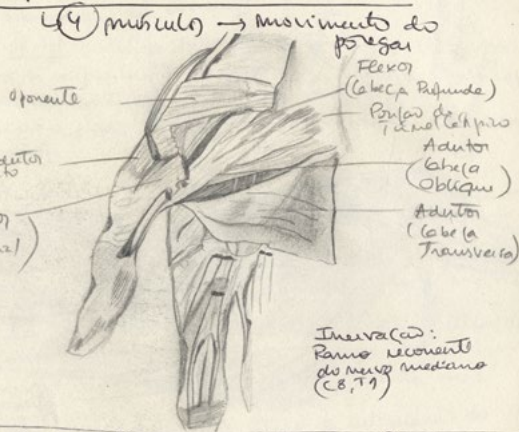 ↳ ④ músculos → movimento do
polegar
Oponente
Flexor
(Cabeça Profunda)
Porção do
Túnel Cárpico
Adutor
(Cabeça
Oblíqua)
Adutor
(Cabeça
Transversa)
Inervação:
Ramo recorrente
do nervo mediano
(C8, T1)